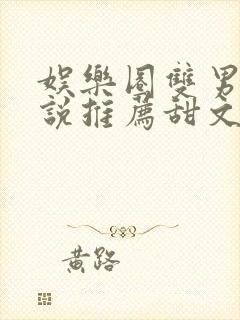 娛樂圈雙男
說推薦甜文
黃路